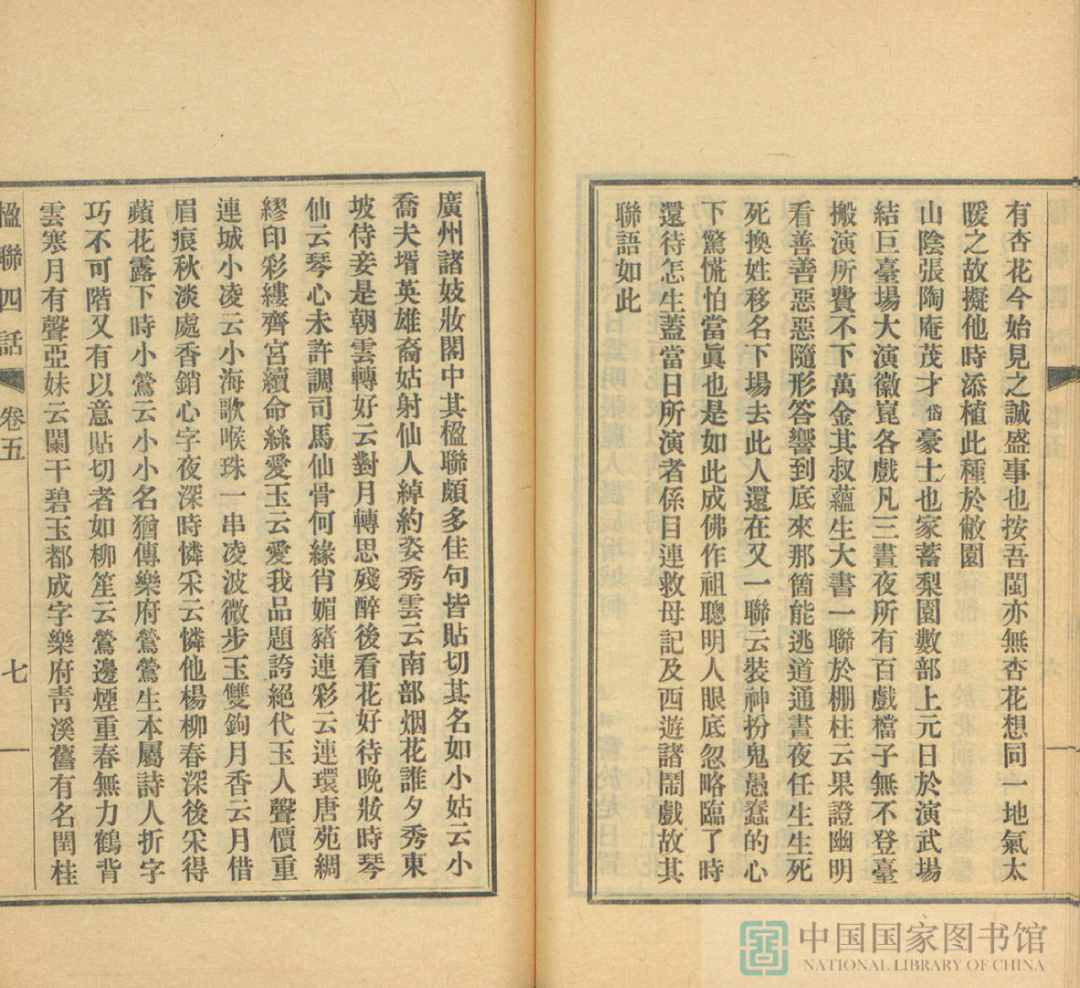 有杏花今始見之誠盛事也按吾閩亦無杏花想同一地氣太
暖之故擬他時添植此種於敝園
山陰張陶庵茂才岱豪士也家蓄梨園數部上元日於演武場
結巨臺場大演徽崑各戲凡三晝夜所有百戲檔子無不登臺
搬演所費不下萬金其叔蘊生大書一聯於棚柱云果證幽明
看善善惡惡隨形答響到底來那箇能逃道通晝夜任生生死
死換姓移名下場去此人還在又一聯云裝神扮鬼愚蠢的心
下驚慌怕當眞也是如此成佛作祖聰明人眼底忽略臨了時
還待怎生蓋當日所演者係目連救母記及西遊諸鬧戲故其
聯語如此
廣州諸妓妝閣中其楹聯頗多佳句皆貼切其名如小姑云小
喬夫壻英雄裔姑射仙人綽約姿秀雲云南部烟花誰夕秀東
坡侍妾是朝雲轉好云對月轉思殘醉後看花好待晚妝時琴
仙云琴心未許調司馬仙骨何緣肖媚豬連彩云連環唐苑綢
繆印彩縷齊宮續命絲愛玉云愛我品題誇絕代玉人聲價重
連城小凌云小海歌喉珠一串凌波微步玉雙鉤月香云月借
眉痕秋淡處香銷心字夜深時憐采云憐他楊柳春深後采得
蘋花露下時小鶯云小小名猶傳樂府鶯鶯生本屬詩人折字
巧不可階又有以意貼切者如柳笙云鶯邊煙重春無力鶴背
雲寒月有聲亞妹云闌干碧玉都成字樂府靑溪舊有名閏桂
楹聯四話 卷五 七
中国国家图书馆
NATIONAL LIBRARY OF CHINA